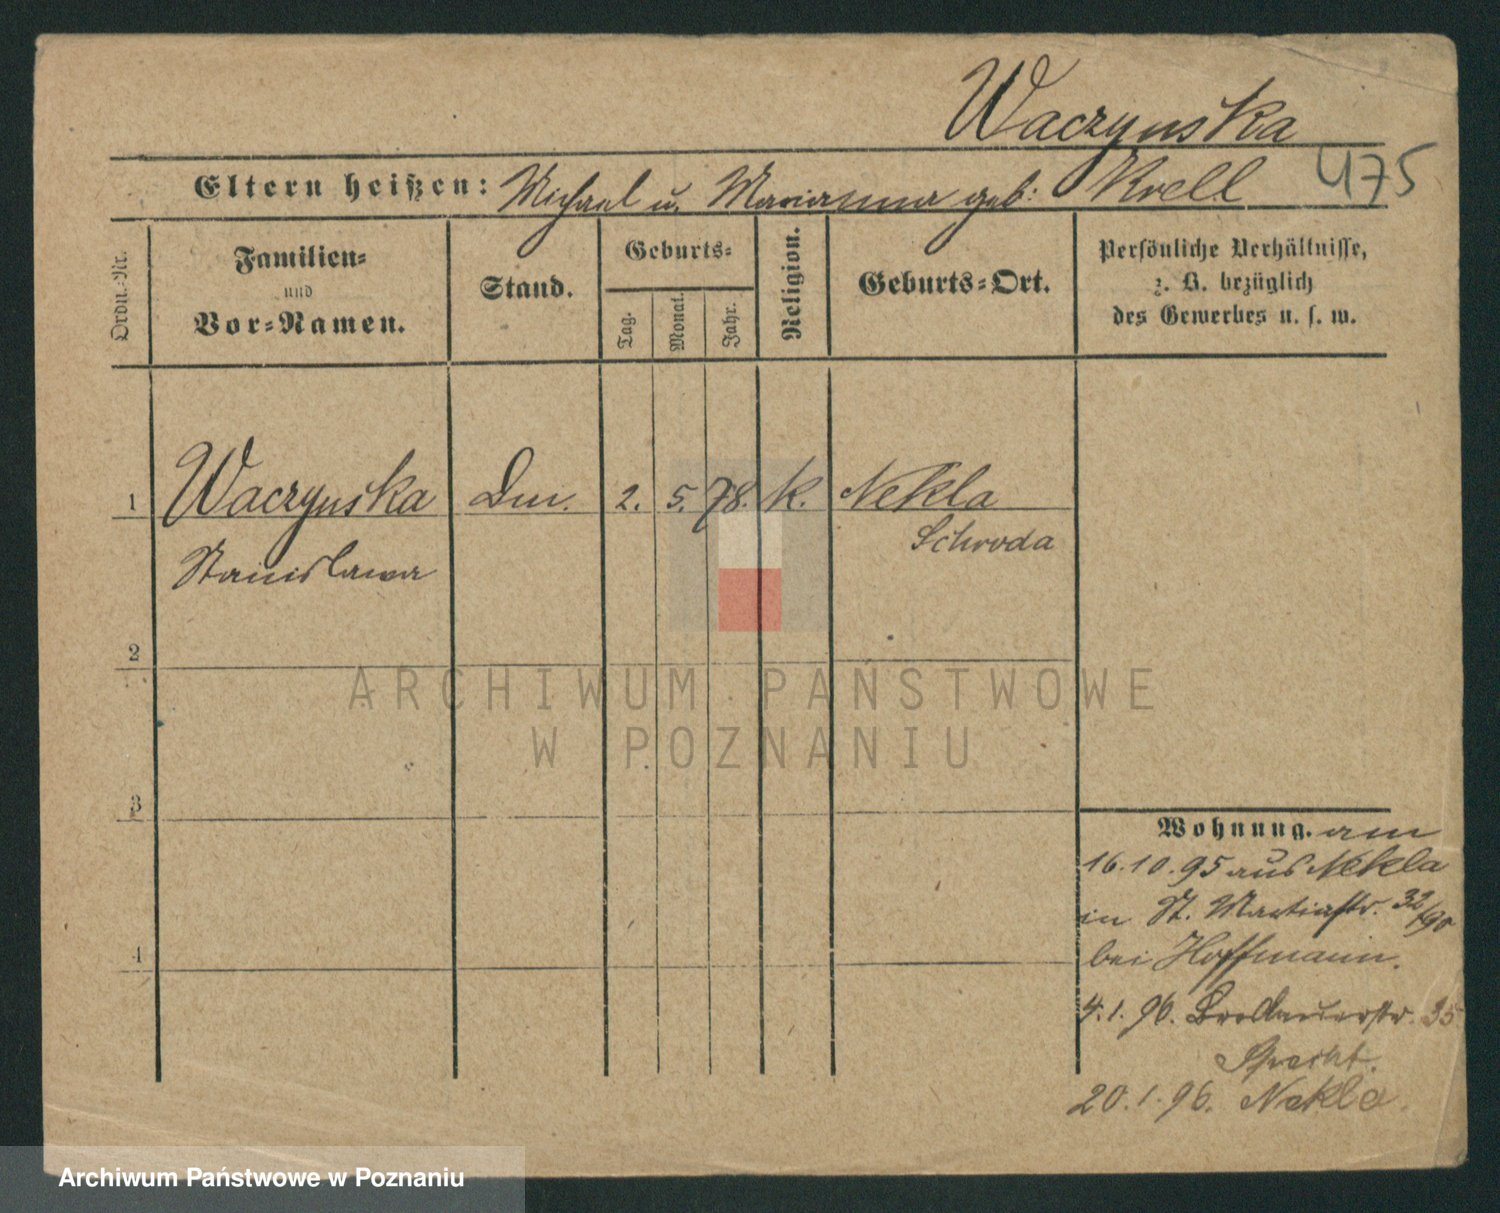 Waczynska
475
Eltern heißen: Michael u. Marianna geb: Krell
Ordn.-Nr.
Familien-
und
Vor-Namen.
Stand.
Geburts-
Tag.
Monat.
Jahr.
Religion.
Geburts-Ort.
Persönliche Verhältnisse,
z. B. bezüglich
des Gewerbes u. s. w.
1 Waczynska Dm. 2. 5. 78. k. Nekla
Schroda
Stanislawa
2
3
4
Wohnung. am
16.10.95 aus Nekla
in St. Martinstr. 32/90
bei Hoffmann.
4.1.96. Breslauerstr. 35
Specht.
20.1.96. Nekla.
ARCHIWUM PAŃSTWOWE
W POZNANIU
Archiwum Państwowe w Poznaniu